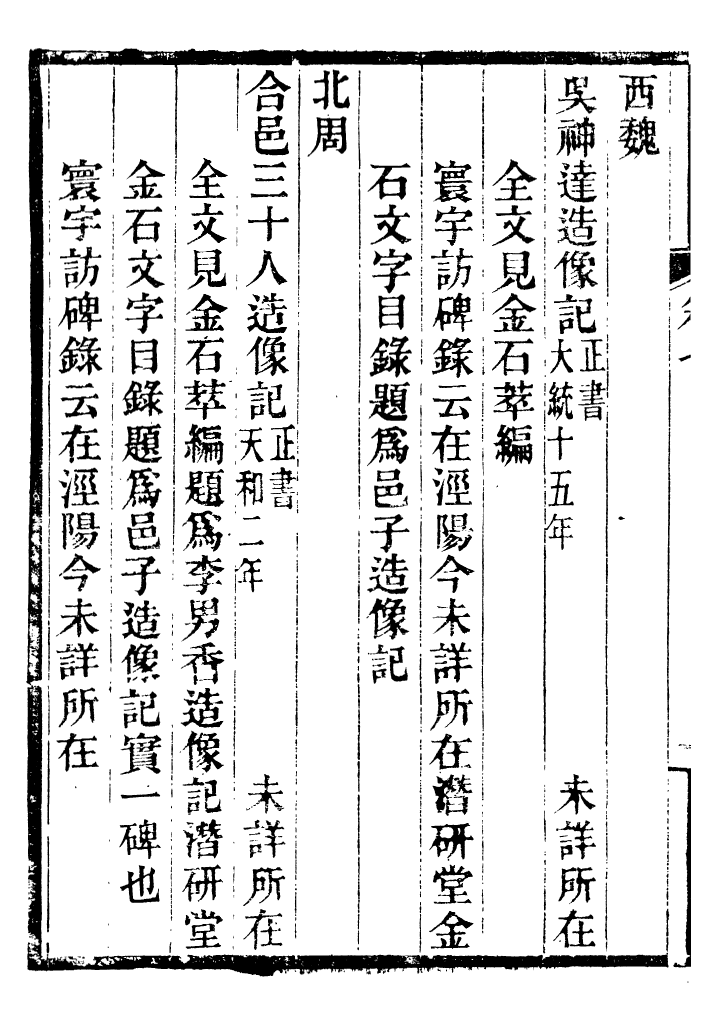 西魏
吳神達造像記 正書 大統十五年 未詳所在
全文見金石萃編
寰宇訪碑錄云在涇陽今未詳所在潛研堂金
石文字目錄題爲邑子造像記
北周
合邑三十人造像記 正書 天和二年 未詳所在
全文見金石萃編題爲李男香造像記潛研堂
金石文字目錄題爲邑子造像記實一碑也
寰宇訪碑錄云在涇陽今未詳所在